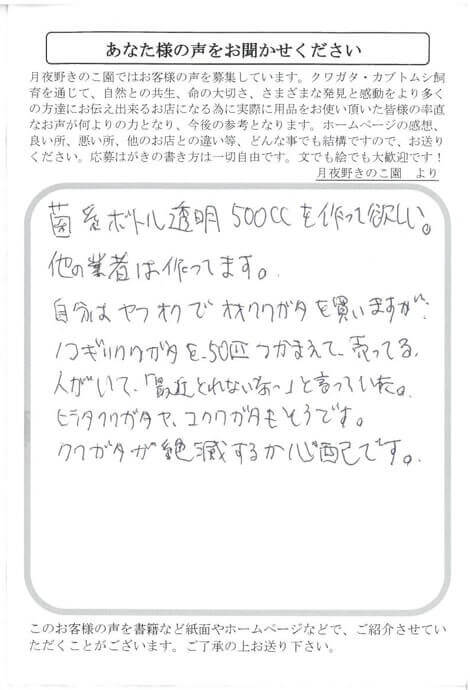 あなた様の声をお聞かせください
月夜野きのこ園ではお客様の声を募集しています。クワガタ・カブトムシ飼
育を通じて、自然との共生、命の大切さ、さまざまな発見と感動をより多く
の方達にお伝え出来るお店になる為に実際に用品をお使い頂いた皆様の率直
なお声が何よりの力となり、今後の参考となります。ホームページの感想、
良い所、悪い所、他のお店との違い等、どんな事でも結構ですので、お送り
ください。応募はがきの書き方は一切自由です。文でも絵でも大歓迎です！
月夜野きのこ園　より
菌糸ボトル透明500CCを作って欲しい。
他の業者は作ってます。
自分はヤフオクでオオクワガタを買いますが、
ノコギリクワガタを、50匹つかまえて、売ってる、
人がいて、「最近とれないなっ」と言っていた。
ヒラタクワガタや、コクワガタもそうです。
クワガタが絶滅するか心配です。
このお客様の声を書籍など紙面やホームページなどで、ご紹介させてい
ただくことがございます。ご了承の上お送り下さい。